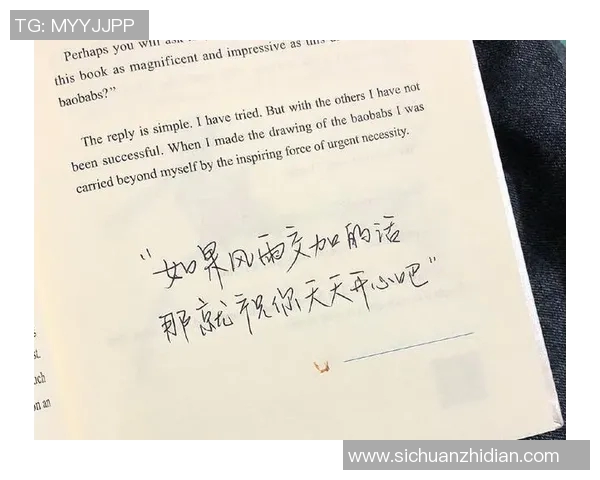 TG: MYYJJPP
Perhaps you will ask
this book as magnificent and impressive as this
baobabs?"
The reply is simple. I have tried. But with the others I have not
been successful. When I made the drawing of the baobabs I was
carried beyond myself by the inspiring force of urgent necessity.
"如果风雨交加的话
那就祝你天天开心吧"
st.
uch
on an
www.sichuanzhidian.com